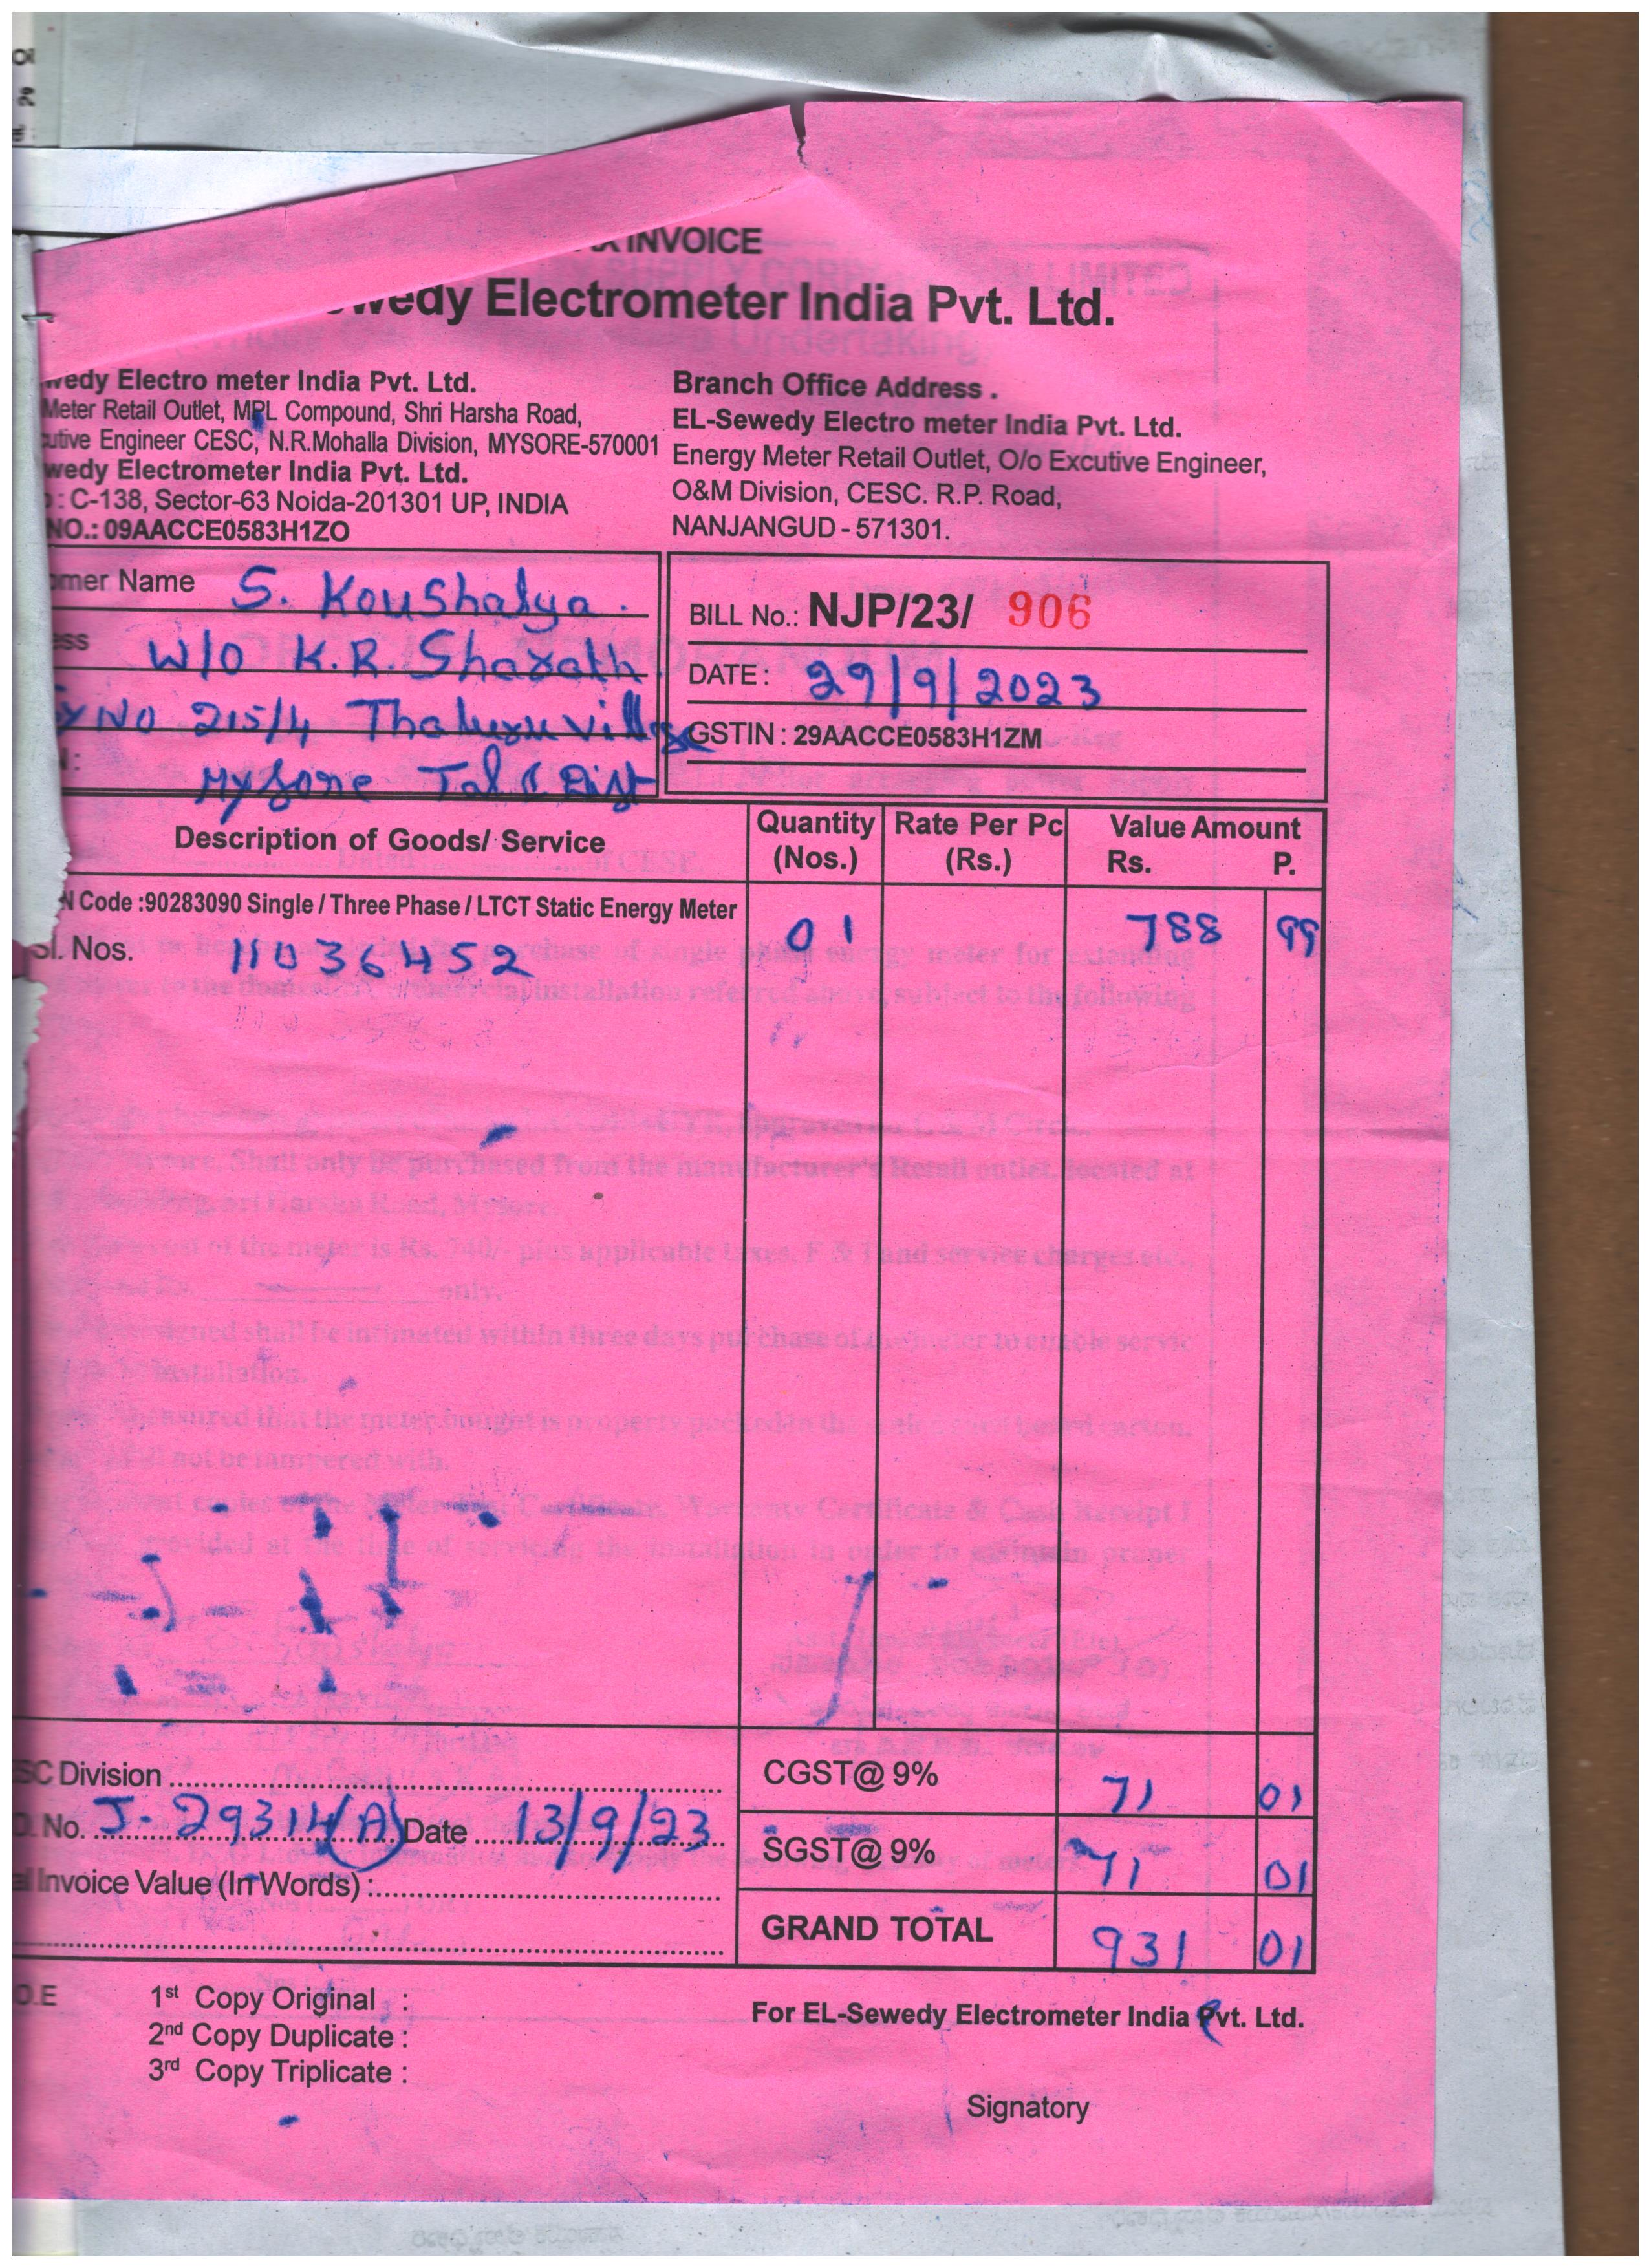 INVOICE
wedy Electrometer India Pvt. Ltd.
wedy Electro meter India Pvt. Ltd.
Meter Retail Outlet, MPL Compound, Shri Harsha Road,
utive Engineer CESC, N.R.Mohalla Division, MYSORE-570001
wedy Electrometer India Pvt. Ltd.
: C-138, Sector-63 Noida-201301 UP, INDIA
NO.: 09AACCE0583H1ZO
Branch Office Address .
EL-Sewedy Electro meter India Pvt. Ltd.
Energy Meter Retail Outlet, O/o Excutive Engineer,
O&M Division, CESC. R.P. Road,
NANJANGUD - 571301.
omer Name S. Koushalya.
ess W/o K.R. Sharath
Sy No 215/4 Thaluru Village
N : Mysore Tal & Dist
BILL No.: NJP/23/ 906
DATE : 29/9/2023
GSTIN : 29AACCE0583H1ZM
Description of Goods/ Service Quantity (Nos.) Rate Per Pc (Rs.) Value Amount Rs. P.
N Code :90283090 Single / Three Phase / LTCT Static Energy Meter 01 788 99
Sl. Nos. 11036452
SC Division
CGST@ 9% 71 01
No. J-29314(A) Date 13/9/23
SGST@ 9% 71 01
Invoice Value (In Words) :
GRAND TOTAL 931 01
O.E
1st Copy Original :
2nd Copy Duplicate :
3rd Copy Triplicate :
For EL-Sewedy Electrometer India Pvt. Ltd.
Signatory